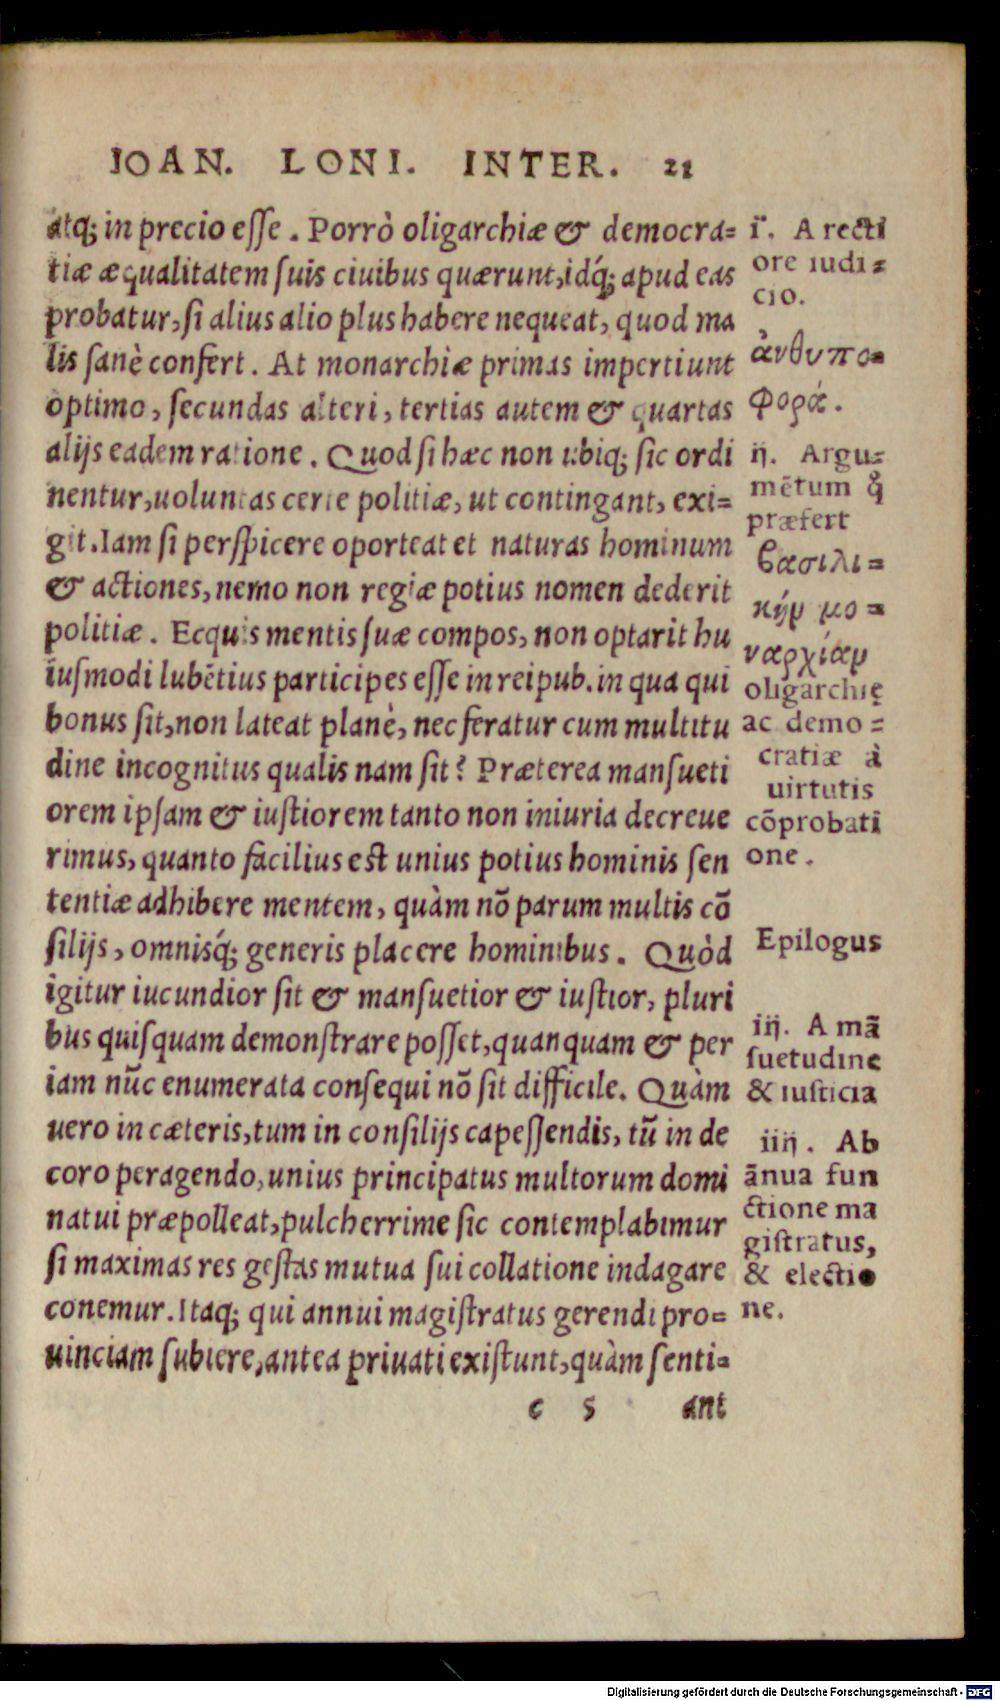 IOAN. LONI. INTER. 21
atq; in precio esse. Porrò oligarchiæ & democra=
tiæ æqualitatem suis ciuibus quærunt, idq́; apud eas
probatur, si alius alio plus habere nequeat, quod ma
lis sanè confert. At monarchiæ primas impertiunt
optimo, secundas alteri, tertias autem & quartas
alijs eadem ratione. Quod si hæc non ubiq; sic ordi
nentur, uoluntas certe politiæ, ut contingant, exi=
git. Iam si perspicere oporteat et naturas hominum
& actiones, nemo non regiæ potius nomen dederit
politiæ. Ecquis mentis suæ compos, non optarit hu
iusmodi lubẽtius participes esse in reipub. in qua qui
bonus sit, non lateat planè, nec feratur cum multitu
dine incognitus qualis nam sit? Præterea mansueti
orem ipsam & iustiorem tanto non iniuria decreue
rimus, quanto facilius est unius potius hominis sen
tentiæ adhibere mentem, quàm nõ parum multis cõ
silijs, omnisq́; generis placere hominibus. Quòd
igitur iucundior sit & mansuetior & iustior, pluri
bus quisquam demonstrare posset, quanquam & per
iam nũc enumerata consequi nõ sit difficile. Quàm
uero in cæteris, tum in consilijs capessendis, tũ in de
coro peragendo, unius principatus multorum domi
natui præpolleat, pulcherrime sic contemplabimur
si maximas res gestas mutua sui collatione indagare
conemur. Itaq; qui annui magistratus gerendi pro=
uinciam subiere, antea priuati existunt, quàm senti=
c 5 ant
i. A recti
ore iudi=
cio.
ἀνθυπο=
φορά.
ij. Argu=
mẽtum ꝙ̃
præfert
βασιλι=
κὴν μο=
ναρχίαν
oligarchię
ac demo=
cratiæ à
uirtutis
cõprobati
one.
Epilogus
iij. A mã
suetudine
& iusticia
iiij. Ab
ãnua fun
ctione ma
gistratus,
& electio
ne.
Digitalisierung gefördert durch die Deutsche Forschungsgemeinschaft - DFG